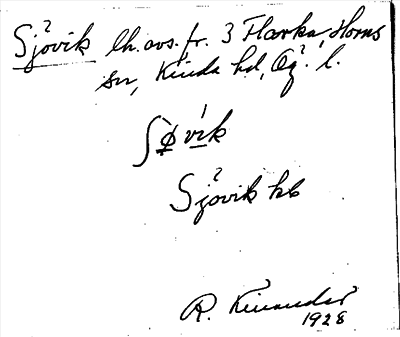 Sjövik lh. avs. fr. 3 Flarka, Horns
sn, Kinda hd, Ög. l.
Sø̀vík
Sjövik kb
R. Kinander
1928